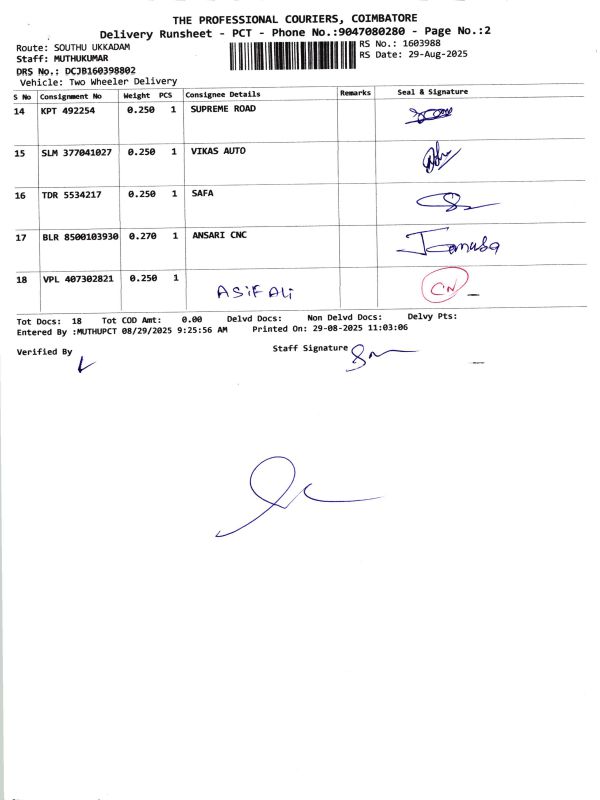 THE PROFESSIONAL COURIERS, COIMBATORE
Delivery Runsheet - PCT - Phone No.:9047080280 - Page No.:2
Route: SOUTHU UKKADAM
RS No.: 1603988
Staff: MUTHUKUMAR
RS Date: 29-Aug-2025
DRS No.: DCJB160398802
Vehicle: Two Wheeler Delivery
S No Consignment No Weight PCS Consignee Details Remarks Seal & Signature
14 KPT 492254 0.250 1 SUPREME ROAD
15 SLM 377041027 0.250 1 VIKAS AUTO
16 TDR 5534217 0.250 1 SAFA
17 BLR 8500103930 0.270 1 ANSARI CNC
18 VPL 407302821 0.250 1 ASIF ALi CN
Tot Docs: 18 Tot COD Amt: 0.00 Delvd Docs: Non Delvd Docs: Delvy Pts:
Entered By :MUTHUPCT 08/29/2025 9:25:56 AM Printed On: 29-08-2025 11:03:06
Verified By Staff Signature